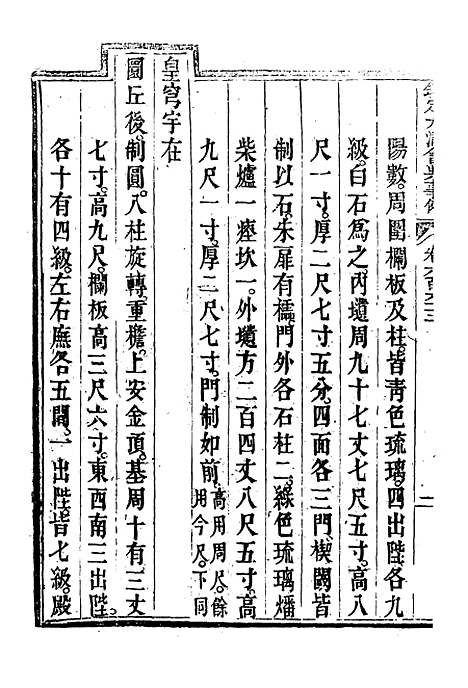 欽定大清會典事例
二
陽數。周圍欄板及柱。皆青色琉璃。四出陛。各九
級。白石爲之。內壝周九十七丈七尺五寸。高八
尺一寸。厚二尺七寸五分。四面各三門。楔閾皆
制以石。朱扉有櫺。門外各石柱二。綠色琉璃燔
柴爐一。瘞坎一。外壝方二百四丈八尺五寸。高
九尺一寸。厚二尺七寸。門制如前。高用周尺。餘
用今尺。下同
皇穹宇在
圜丘後。制圓。八柱旋轉。重檐。上安金頂。基周十有三丈
七寸。高九尺。欄板高三尺六寸。東西南三出陛。
各十有四級。左右廡各五間。一出陛皆七級。殿